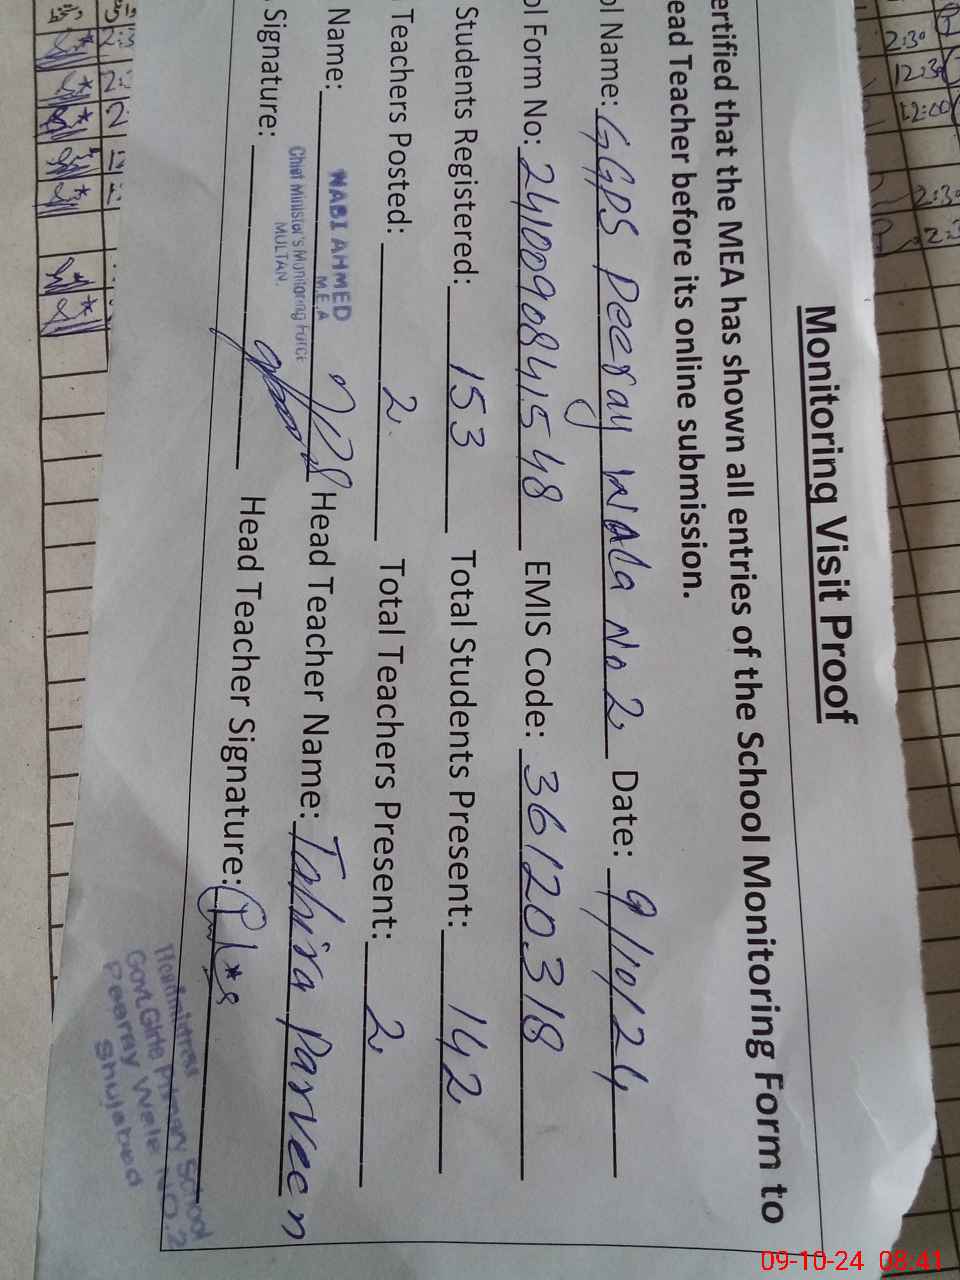 Monitoring Visit Proof
ertified that the MEA has shown all entries of the School Monitoring Form to
ead Teacher before its online submission.
ol Name: GGPS Peeray Wala No 2 Date: 9/10/24
ol Form No: 241009084548 EMIS Code: 36120318
Students Registered: 153 Total Students Present: 142
Teachers Posted: 2 Total Teachers Present: 2
Name: Head Teacher Name: Tahira Parveen
NABI AHMED
M.E.A
Chief Minister's Monitoring Force
MULTAN.
Signature: Head Teacher Signature:
Headmistress
Govt. Girls Primary School
Peeray Wala NO.2
Shujabad
2:30
12:30
12:00
2:30
09-10-24 08:41